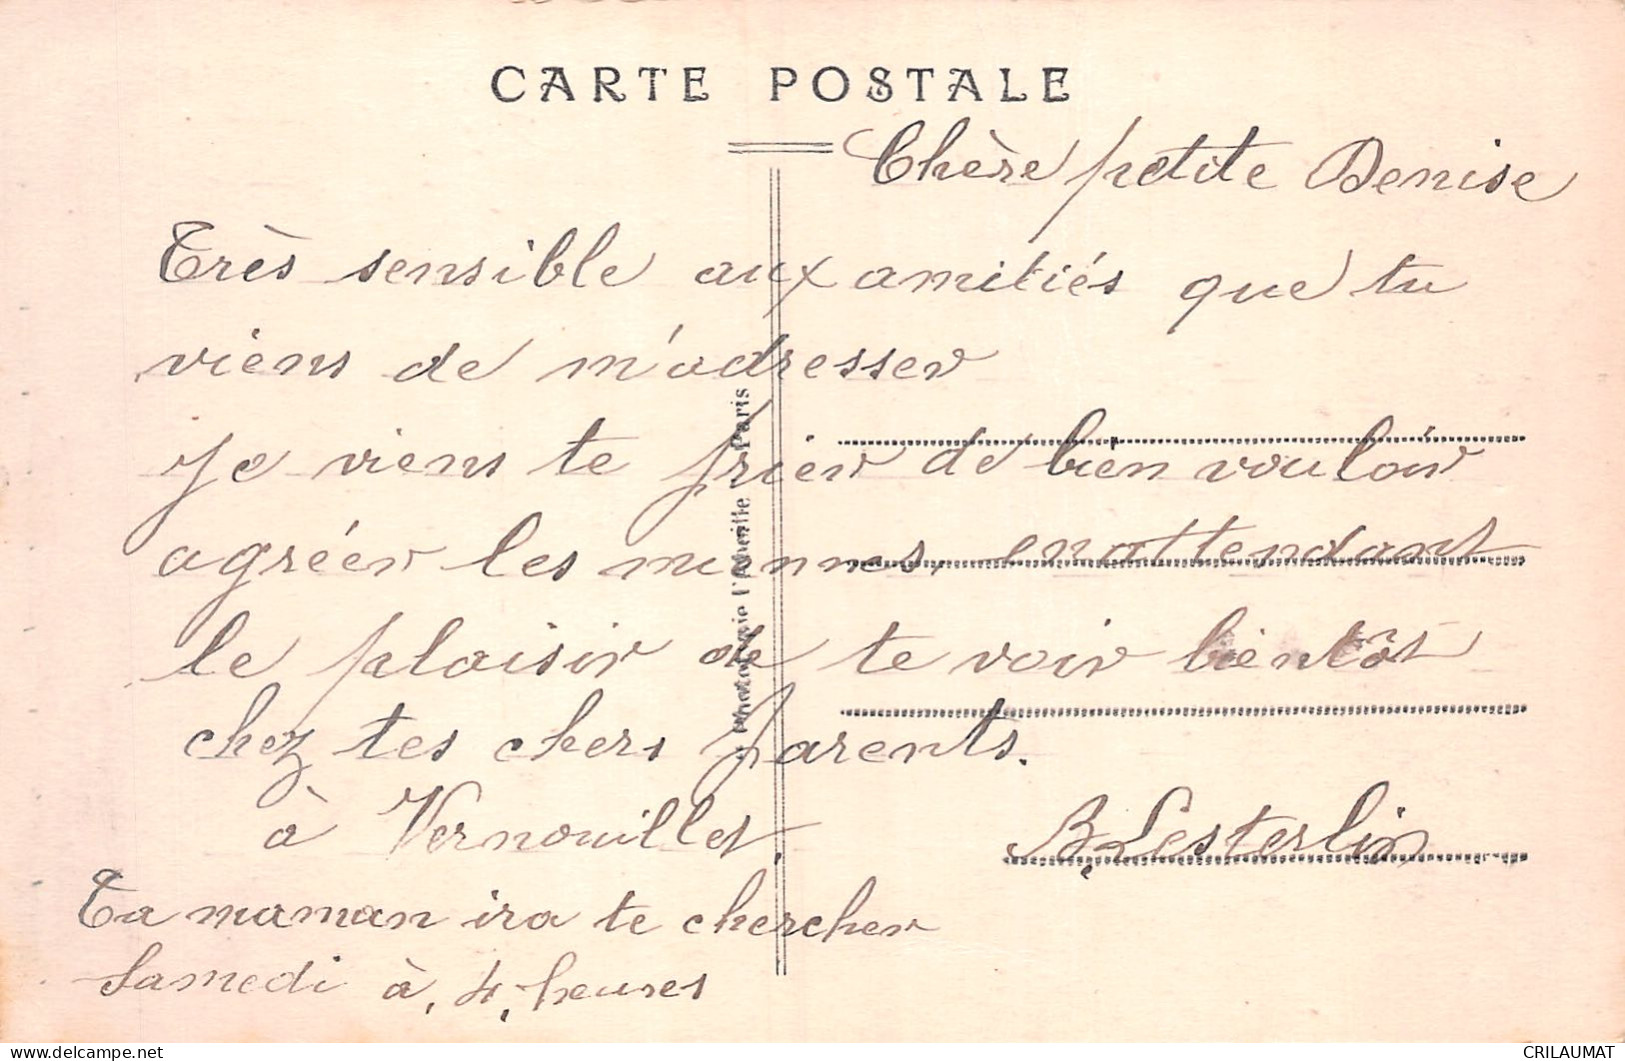 CARTE POSTALE
Chère petite Denise
Très sensible aux amitiés que tu
viens de m'adresser
Je viens te prier de bien vouloir
agréer les miennes, en attendant
le plaisir de te voir bientôt
chez tes chers parents.
à Vernouillet.
B. Lesterlin
Ta maman ira te chercher
Samedi à 4 heures
Photographie l'Abeille - Paris
delcampe.net
CRILAUMAT